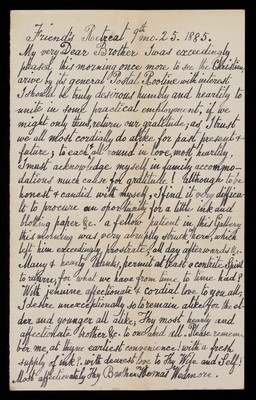 Friend's Retreat 9th mo. 25. 1885.
My very Dear Brother I was exceedingly
pleased, this morning once more to see the Christian,
arive by it general Postal Rootine with interest
I should be truly desirous humbly and heartily to
unite in some practical employment, if we
might only thus, return our gratitude; as I trust
we all most cordially do alike for past present &
future; to each & all round in love, most heartily,
I must acknowledge myself in family accommo-
dations much calls for gratitude. Although to be
honest & candid with myself, I find it very difficu-
lt to procure an oportunity for a little ink and
blotting paper &c. a fellow patient in this Gallery
this morning was very abruptly struck, which
left him exceedingly prostrate, all day afterwards &c.
Many & bounty thanks, permit at least a contrite Spirit
to utter, for what we have from time to time had?
With genuine affectionate & cordial love to you all;
I desire unexceptionally so to remain alike for the ol-
der and younger all alike, Thy most nearly and
affectionate brother, &c. to one and all. Please remem-
ber me at thyne earliest convenience! with a fresh
supply of ink? with dearest love to Thy Wife and Self!
Most affectionately Thy Brother Thomas Wedmore.